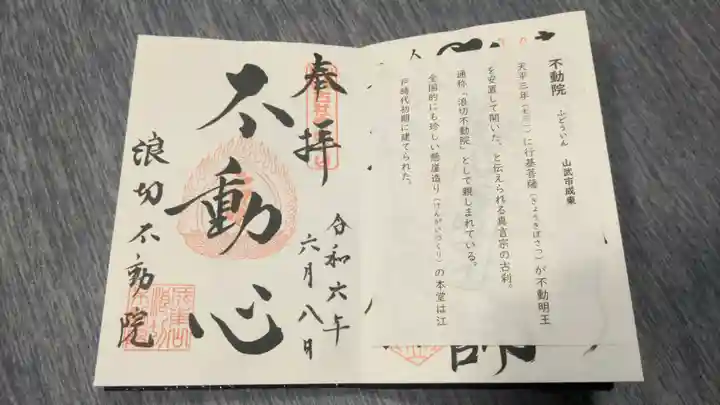 不動院　ふどういん　山武市成東
天平三年（七三一）に行基菩薩（ぎょうきぼさつ）が不動明王
を安置して開いた、と伝えられる真言宗の古刹。
通称「浪切不動院」として親しまれている。
全国的にも珍しい懸崖造り（けんがいづくり）の本堂は江
戸時代初期に建てられた。
奉拝
令和六年
六月八日
不動心
浪切不動院
師